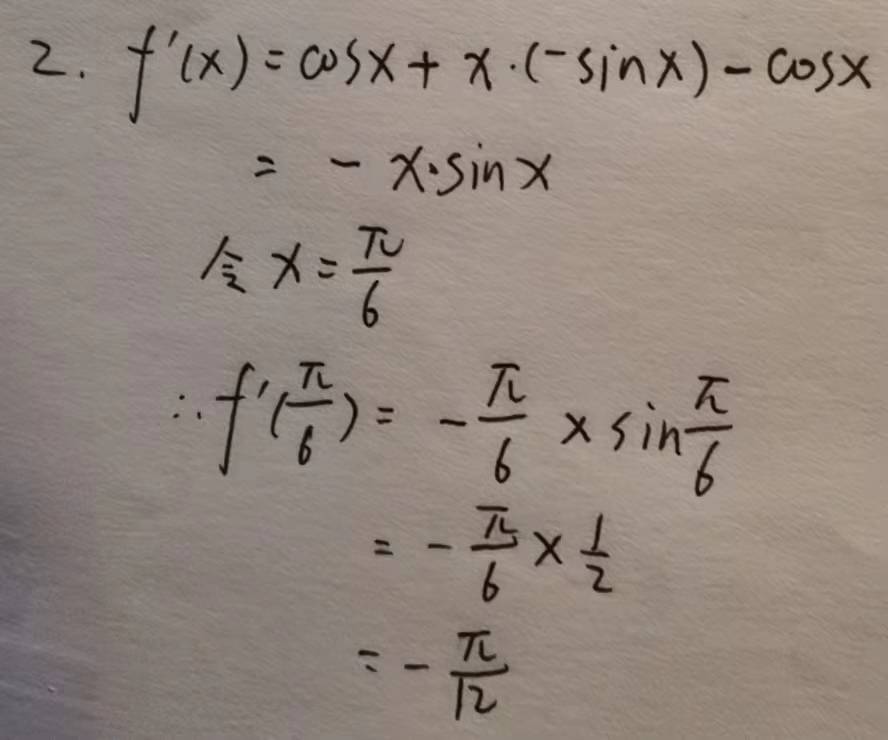 2. f'(x) = cosx + x·(-sinx) - cosx
= - x·sinx
令 x = π/6
∴ f'(π/6) = - π/6 × sin π/6
= - π/6 × 1/2
= - π/12